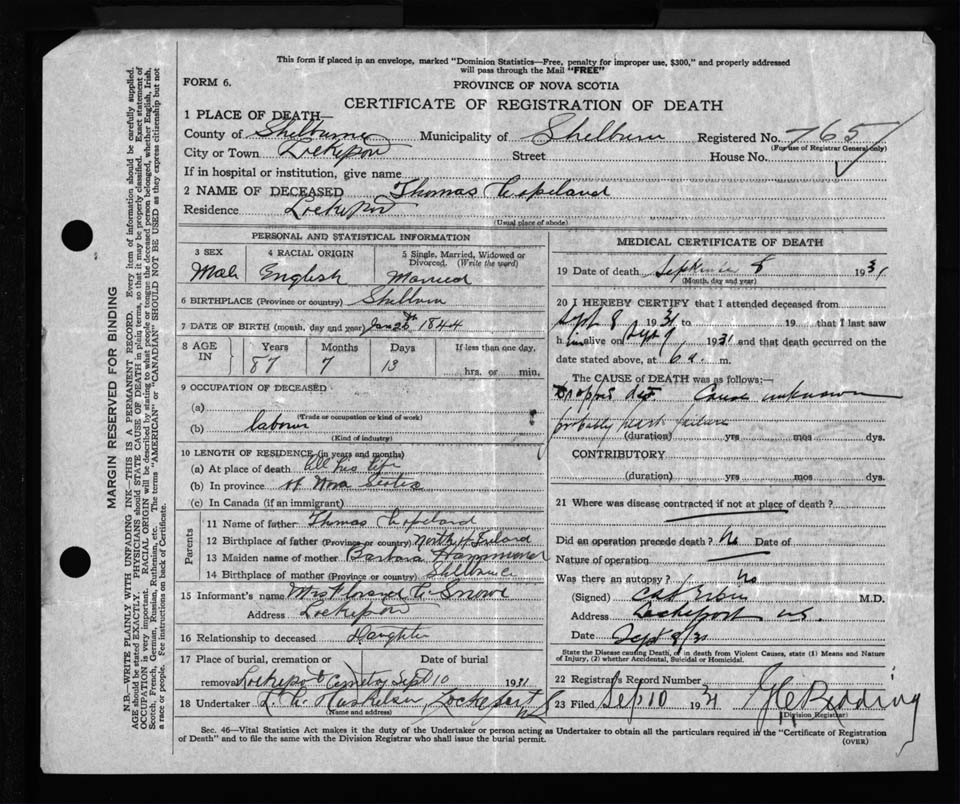 This form if placed in an envelope, marked "Dominion Statistics—Free, penalty for improper use, $300," and properly addressed
will pass through the Mail "FREE"
FORM 6.
PROVINCE OF NOVA SCOTIA
CERTIFICATE OF REGISTRATION OF DEATH
1 PLACE OF DEATH
County of Shelburne Municipality of Shelburn Registered No. 765
City or Town Lockeport Street House No. (For use of Registrar General only)
If in hospital or institution, give name
2 NAME OF DECEASED Thomas Copeland
Residence Lockeport
(Usual place of abode)
PERSONAL AND STATISTICAL INFORMATION
3 SEX 4 RACIAL ORIGIN 5 Single, Married, Widowed or Divorced. (Write the word)
Male English Married
6 BIRTHPLACE (Province or country) Shelburn
7 DATE OF BIRTH (month, day and year) Jan 26th 1844
8 AGE IN Years Months Days If less than one day,
87 7 13 hrs. or min.
9 OCCUPATION OF DECEASED
(a)
(Trade or occupation or kind of work)
(b) labour
(Kind of industry)
10 LENGTH OF RESIDENCE (in years and months)
(a) At place of death all his life
(b) In province of Nova Scotia
(c) In Canada (if an immigrant)
Parents
11 Name of father Thomas Copeland
12 Birthplace of father (Province or country) North of Ireland
13 Maiden name of mother Barbara
14 Birthplace of mother (Province or country) Shelburne
15 Informant's name Mrs C. Snow
Address Lockeport
16 Relationship to deceased Daughter
17 Place of burial, cremation or Date of burial
removal Lockeport Cemetery Sept 10 1931.
18 Undertaker Lockeport NS
(Name and address)
MEDICAL CERTIFICATE OF DEATH
19 Date of death September 8 1931
(Month, day and year)
20 I HEREBY CERTIFY that I attended deceased from
Sept 8 1931 to 19 that I last saw
h im alive on Sept 9 1931 and that death occurred on the
date stated above, at 6 a. m.
The CAUSE of DEATH was as follows:—
Dropped Cause unknown
probably heart failure
(duration) yrs mos dys.
CONTRIBUTORY
(duration) yrs mos dys.
21 Where was disease contracted if not at place of death?
Did an operation precede death? No Date of
Nature of operation
Was there an autopsy? No
(Signed) M.D.
Address Lockeport NS.
Date Sept 9/31
State the Disease causing Death, or in death from Violent Causes, state (1) Means and Nature
of Injury, (2) whether Accidental, Suicidal or Homicidal.
22 Registrar's Record Number
23 Filed Sep 10 1931 Redding
(Division Registrar)
Sec. 46—Vital Statistics Act makes it the duty of the Undertaker or person acting as Undertaker to obtain all the particulars required in the "Certificate of Registration
of Death" and to file the same with the Division Registrar who shall issue the burial permit.
(OVER)
MARGIN RESERVED FOR BINDING
N.B.—WRITE PLAINLY WITH UNFADING INK—THIS IS A PERMANENT RECORD. Every item of information should be carefully supplied.
AGE should be stated EXACTLY. PHYSICIANS should STATE CAUSE OF DEATH in plain terms, so that it may be properly classified. Exact statement of
OCCUPATION is very important. RACIAL ORIGIN will be described by stating to what people or tongue the deceased person belonged, whether English, Irish,
Scotch, French, German, Russian, Ruthenian, etc. The terms "AMERICAN" or "CANADIAN" SHOULD NOT BE USED as they express citizenship but not
a race or people. Fee instructions on back of Certificate.